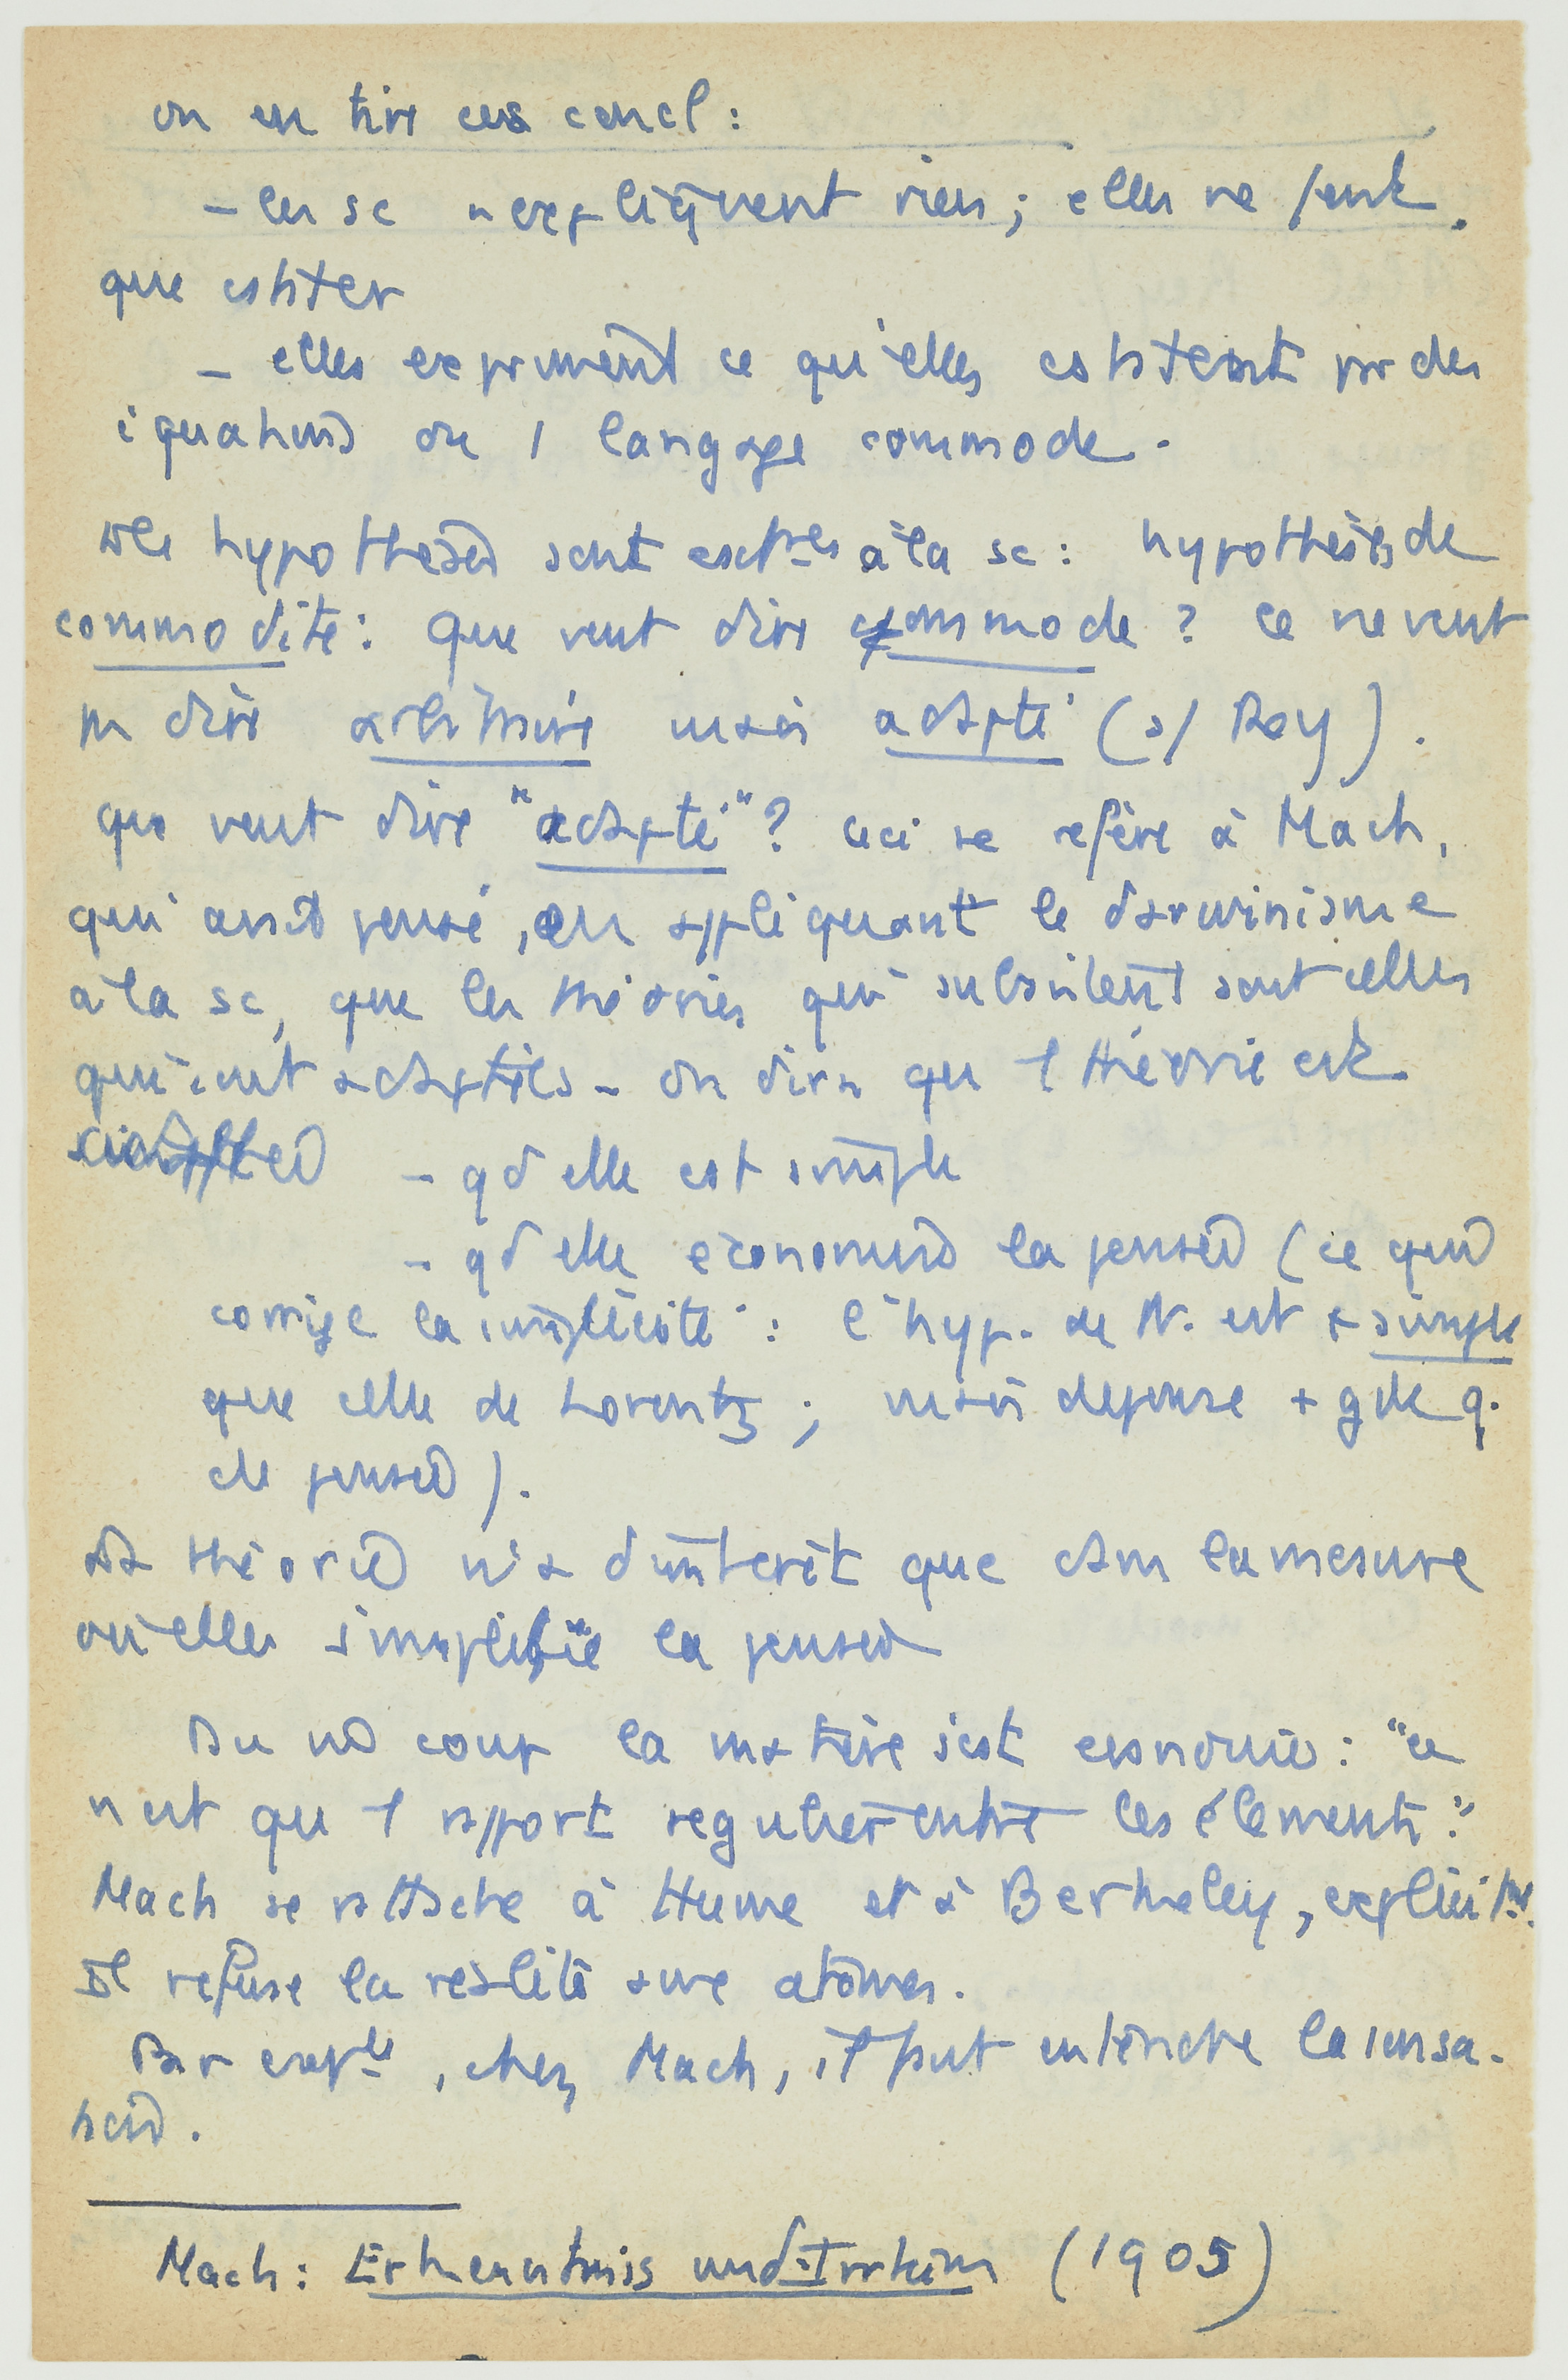 on en tire ces concl :
- les sc n'expliquent rien ; elles ne font
que cstter
- elles expriment ce qu'elles cstatent par des
équations ou 1 langage commode.
Les hypothèses sont à la sc : hypothèses de
commodité : Que veut dire commode ? Ce ne veut
pas dire arbitraire mais adapté (s/ Rey).
que veut dire "adapté" ? ceci se réfère à Mach,
qui avait pensé, en appliquant le darwinisme
à la sc, que les théories qui subsistent sont celles
qui sont adaptées - On dira qu'1 théorie est
- qd elle est simple
- qd elle économise la pensée (ce qui
corrige la simplicité : l'hyp. de N. est + simple
que celle de Lorentz ; mais dépense + gde q.
de pensée).
La théorie n'a d'intérêt que dans la mesure
où elle simplifie la pensée
Du coup la matière s'est : "ce
n'est qu'1 rapport régulier entre les éléments".
Mach se rattache à Hume et à Berkeley, explicitmt.
Il refuse la réalité aux atomes.
Par exple, chez Mach, il faut entendre la sensa-
tion.
Mach : Erkenntnis und Irrtum (1905)